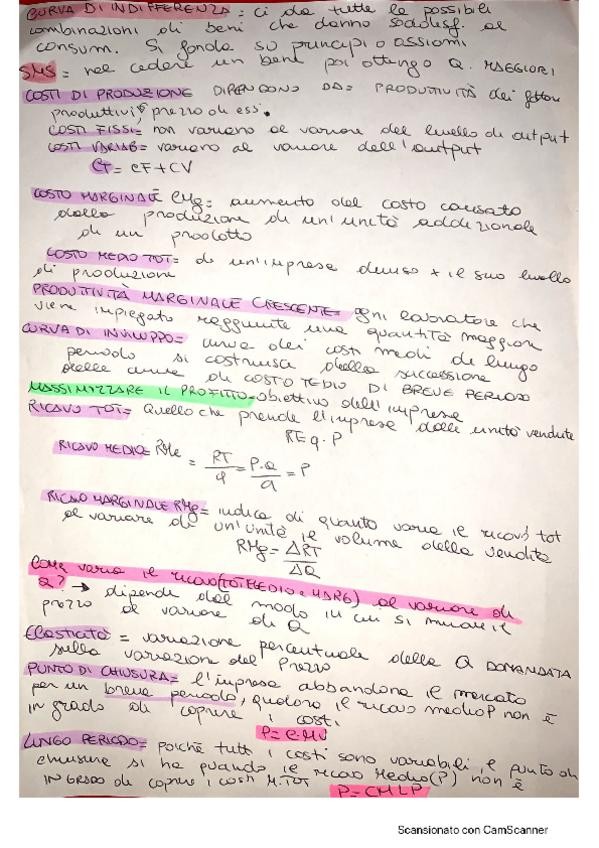 CURVA DI INDIFFERENZA = ci da tutte le possibili
combinazioni di beni che danno soddisf. al
consum. Si fonda su principi o assiomi
SMS = nel cedere un bene poi ottengo Q. MAGGIORI
COSTI DI PRODUZIONE DIPENDONO DA = PRODUTTIVITÀ dei fattori
produttivi, prezzo di essi.
COSTI FISSI = non variano al variare del livello di output
COSTI VARIAB = variano al variare dell'output
CT = CF + CV
COSTO MARGINALE CMg = aumento del costo causato
dalla produzione di un'unità addizionale
di un prodotto
COSTO MEDIO TOT = di un'impresa diviso + il suo livello
di produzione
PRODUTTIVITÀ MARGINALE CRESCENTE = ogni lavoratore che
viene impiegato raggiunte una quantità maggiore
CURVA DI INVILUPPO = curva dei costi medi di lungo
periodo si costruisce dalla successione
delle curve di COSTO MEDIO DI BREVE PERIODO
MASSIMIZZARE IL PROFITTO = obiettivo dell'imprese
RICAVO TOT = Quello che prende l'imprese dalle unità vendute
RT = q . P
RICAVO MEDIO = RMe = RT / q = P.Q / Q = P
RICAVO MARGINALE RMg = indica di quanto varia il ricavo tot
al variare di un'unità il volume della vendita
RMg = ΔRT / ΔQ
Come varia il ricavo (TOT MEDIO e MARG) al variare di
Q? → dipende dal modo in cui si muove il
prezzo al variare di Q
Elasticità = variazione percentuale della Q DOMANDATA
sulla variazione del Prezzo
PUNTO DI CHIUSURA = l'impresa abbandona il mercato
per un breve periodo, qualora il ricavo medio P non è
in grado di coprire i costi.
LUNGO PERIODO = Poiché tutti i costi sono variabili, il punto di
chiusura si ha quando il ricavo Medio (P) non è
IN GRADO di coprire i costi M.TOT
P = CMLP
Scansionato con CamScanner